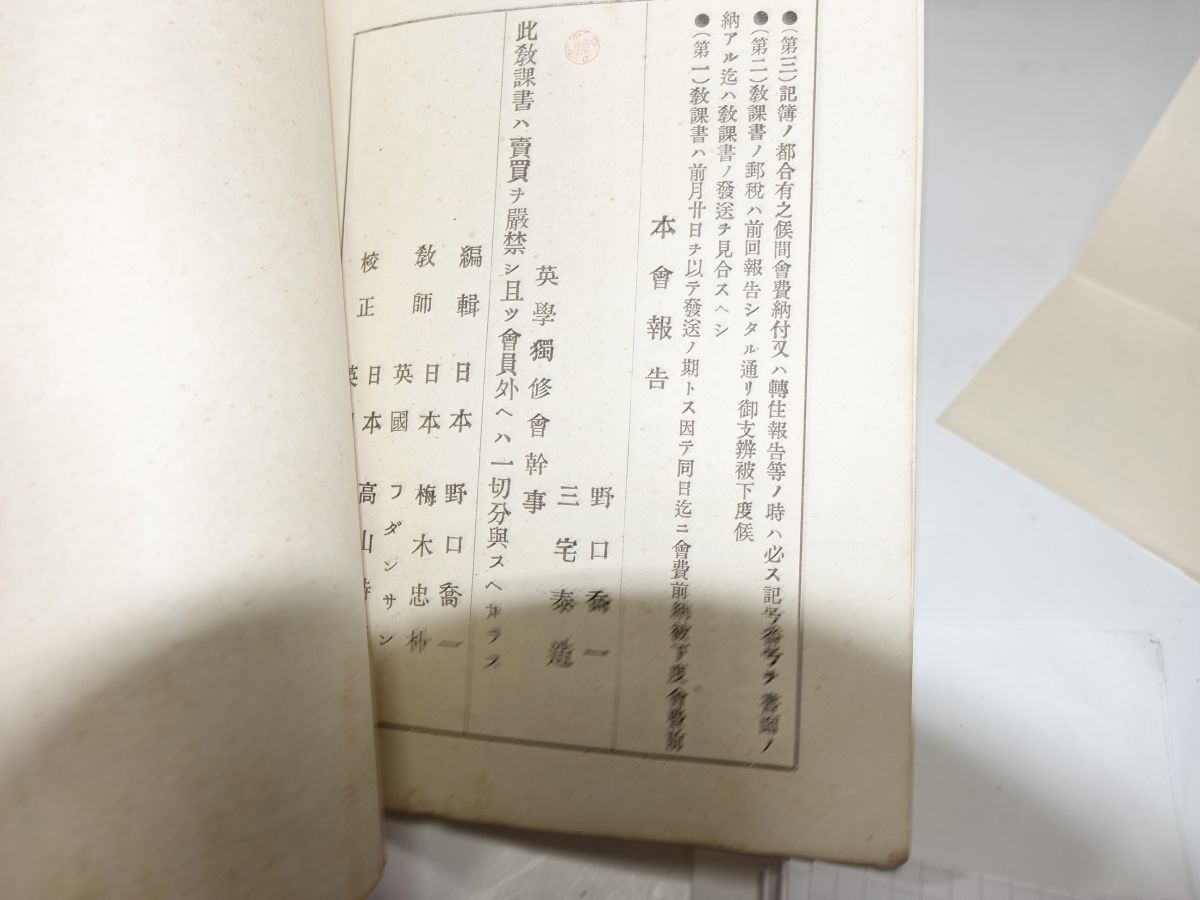 校正 日本 高山
英國 フダンサン
教師 日本 梅木忠朴
編輯 日本 野口喬一
此教課書ハ賣買ヲ嚴禁シ且ツ會員外ヘハ一切分與スヘカラス
英學獨修會幹事
三宅泰造
野口喬一
本會報告
●(第一)教課書ハ前月廿日ヲ以テ發送ノ期トス因テ同日迄ニ會費前納被下度會費前
納アル迄ハ教課書ノ發送ヲ見合スヘシ
●(第二)教課書ノ郵税ハ前回報告シタル通リ御支辨被下度候
●(第三)記簿ノ都合有之候間會費納付又ハ轉住報告等ノ時ハ必ス記号番号ヲ書面ノ